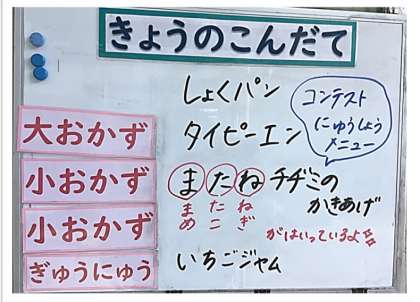 きょうのこんだて
しょくパン
大おかず タイピーエン
コンテスト
にゅうしょう
メニュー
小おかず またねチヂミの
まめ たこ ねぎ
かきあげ
小おかず
がはいっているよ
ぎゅうにゅう いちごジャム